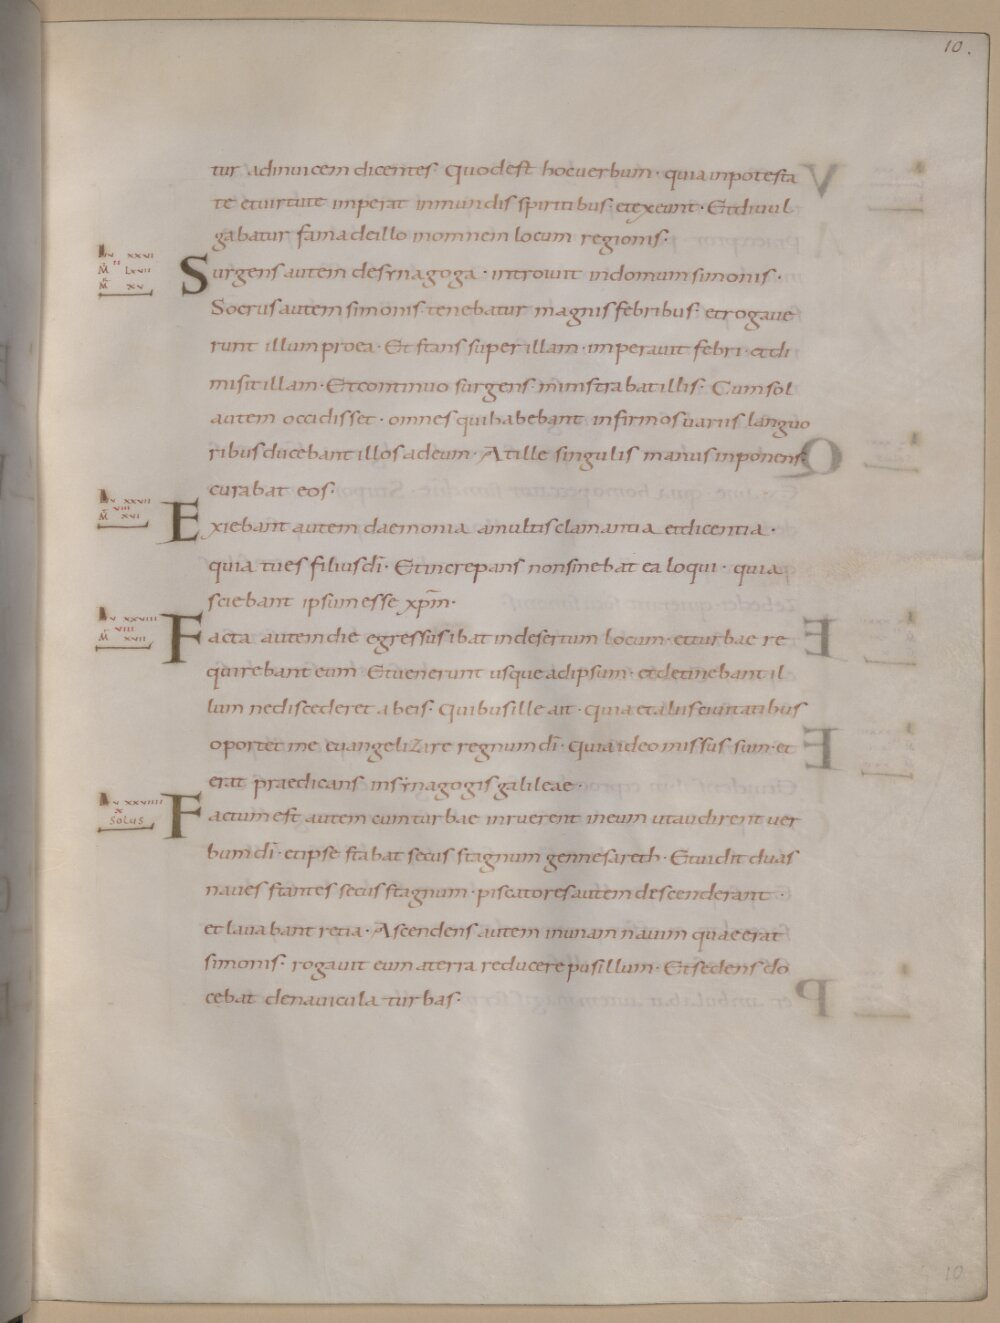 10.
tur adinuicem dicentes. Quodest hocuerbum. quia inpotesta
te etuirtute imperat inmundis spiritibus etexeunt. Etdiuul
gabatur fama deillo inomnem locum regionis.
Lu XXVI
M LXVII
M XV
Surgens autem desynagoga. introiuit indomum simonis.
Socrus autem simonis tenebatur magnis febribus. etrogaue
runt illum proea. Et stans super illam. imperauit febri. etdi
misit illam. Etcontinuo surgens ministrabat illis. Cum sol
autem occidisset. omnes quihabebant infirmos uariis languo
ribus ducebant illos adeum. Atille singulis manus inponens
curabat eos.
Lu XXVII
VIII
M XVI
Exiebant autem daemonia amultis clamantia etdicentia.
quia tues filius di. Etincrepans nonsinebat ea loqui. quia
sciebant ipsum esse xpm.
Lu XXVIII
VIII
M XVII
Facta autem die egressus ibat indesertum locum. etturbae re
quirebant eum. Etuenerunt usque adipsum. etdetinebant il
lum nediscederet abeis. Quibus ille ait. quia etaliis ciuitatibus
oportet me euangelizare regnum di. Quia ideo missus sum. et
erat praedicans insynagogis galileae.
Lu XXVIIII
X
SOLUS
Factum est autem cum turbae inruerent ineum utaudirent uer
bum di. etipse stabat secus stagnum gennesareth. Etuidit duas
naues stantes secus stagnum. piscatores autem descenderant.
et lauabant retia. Ascendens autem inunam nauim quae erat
simonis. rogauit eum aterra reducere pusillum. Etsedens do
cebat denauicula turbas.
10